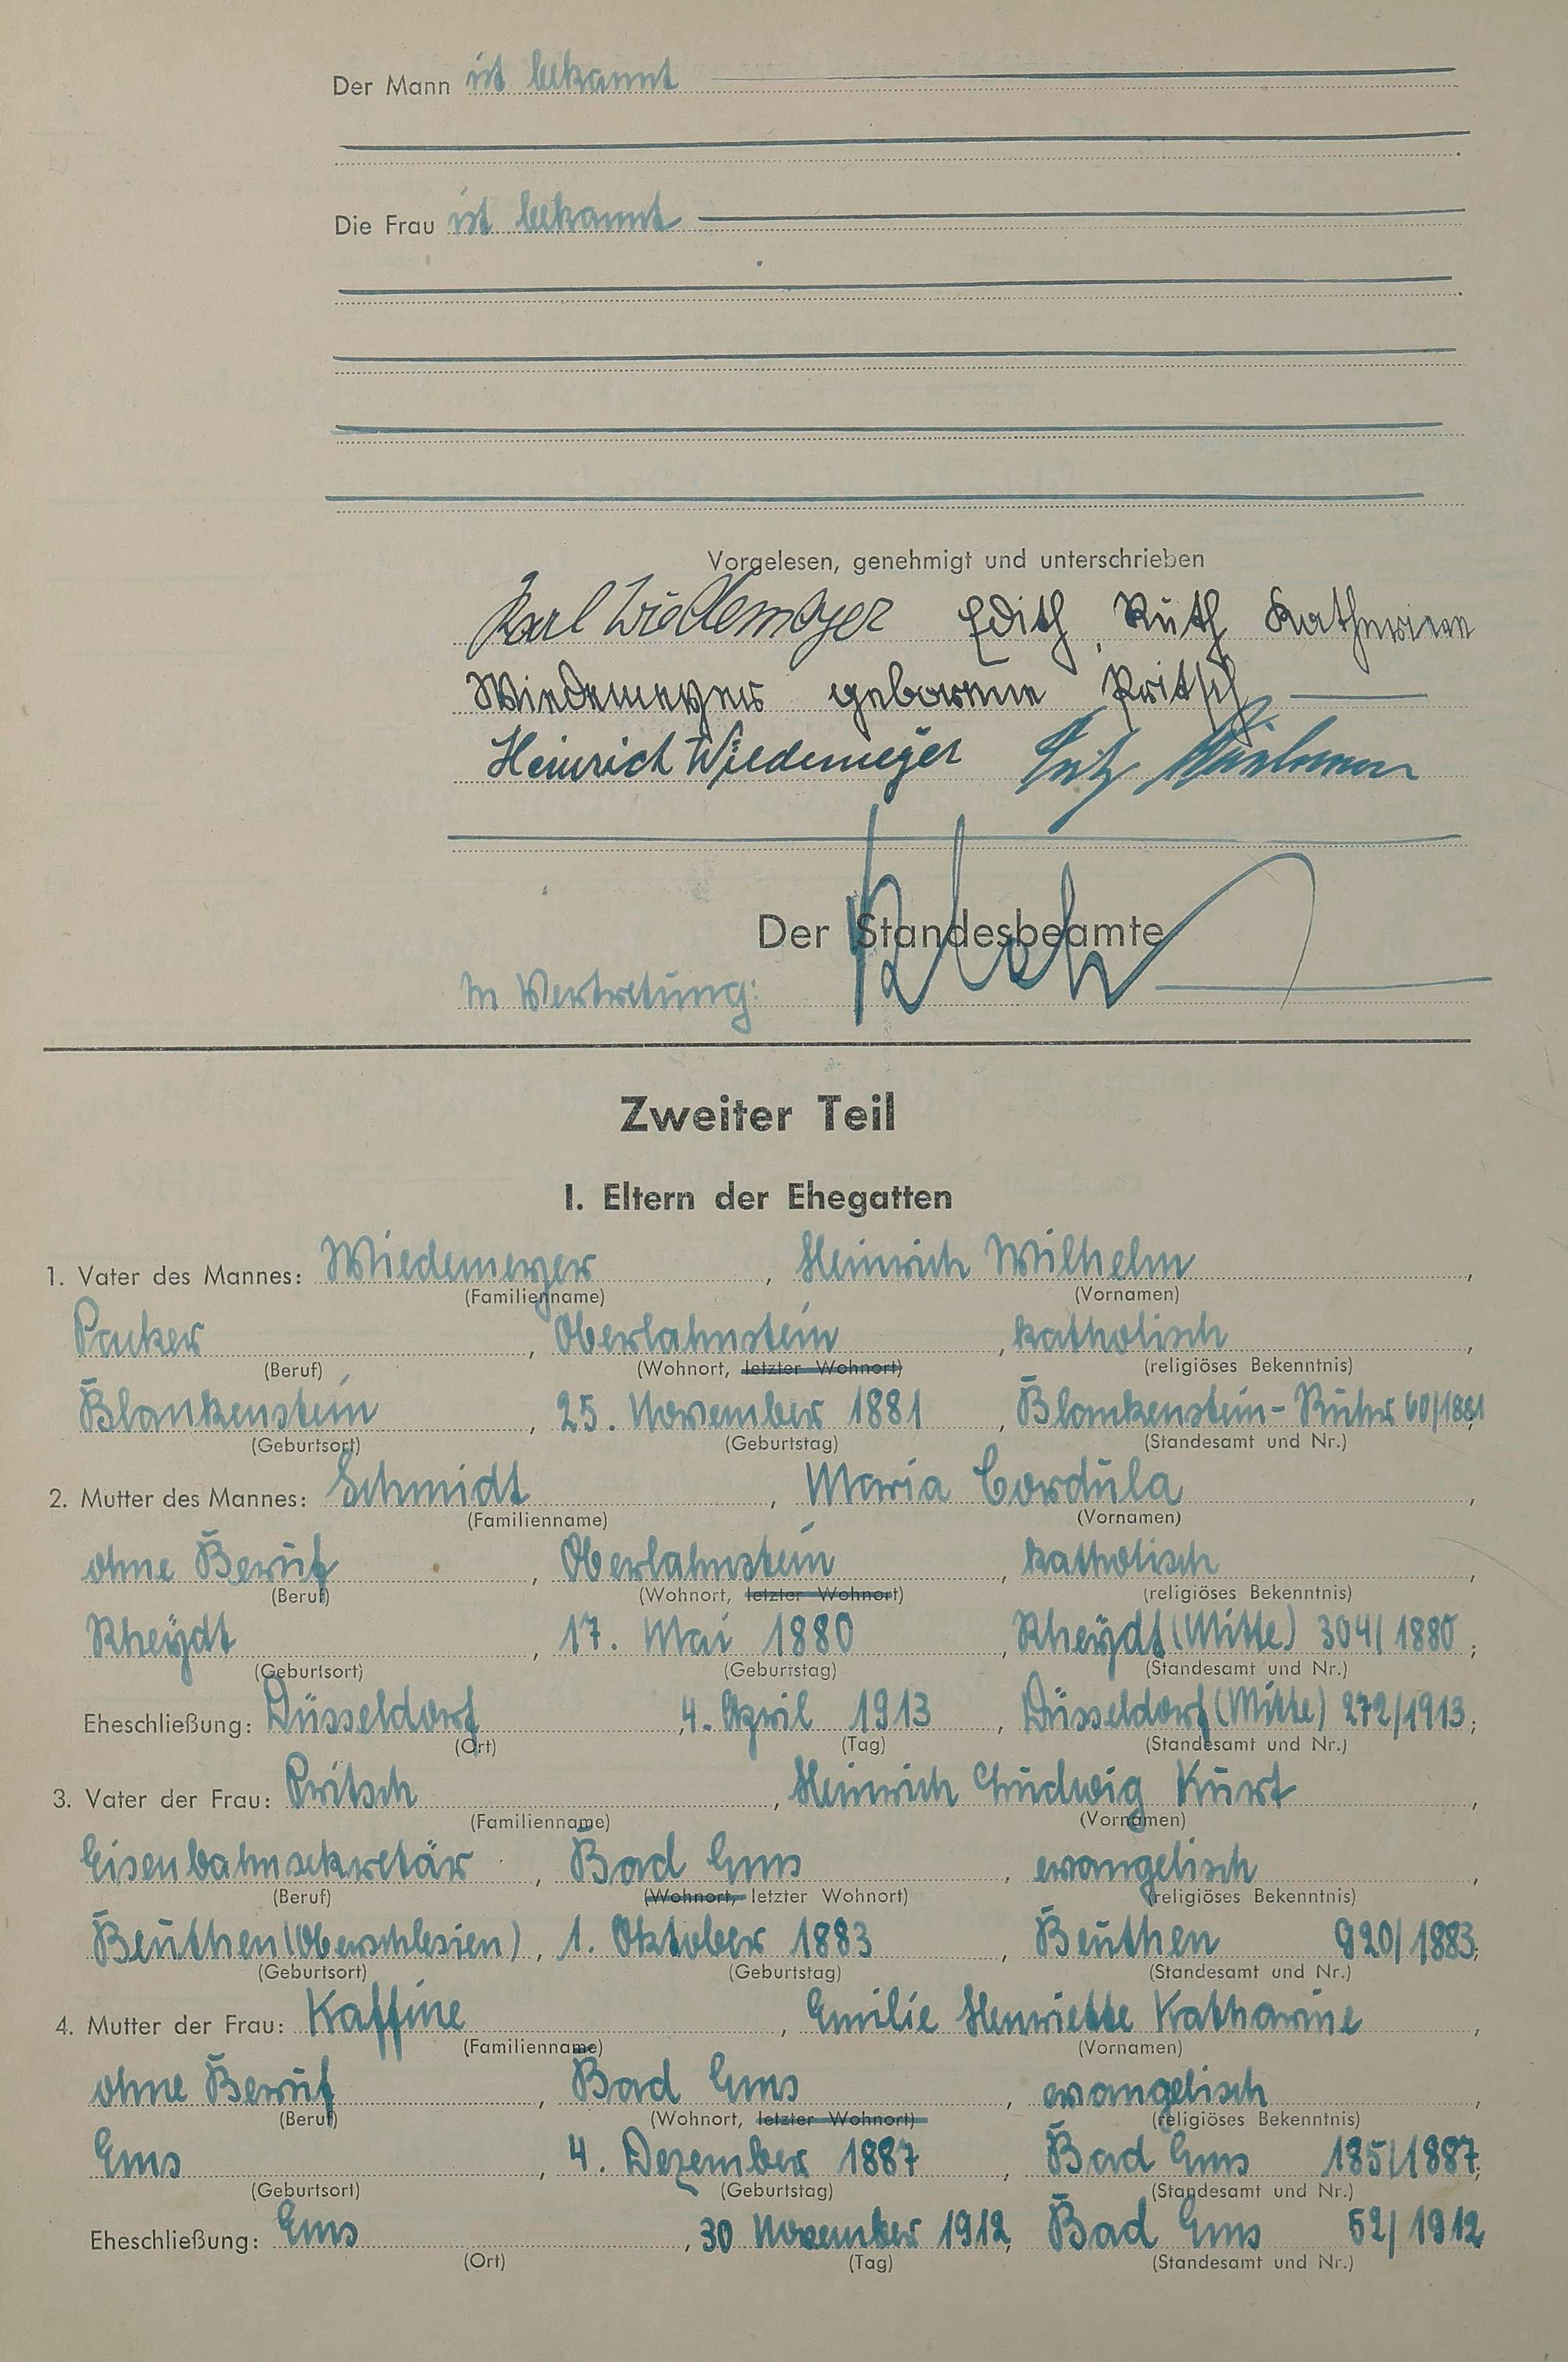 Der Mann ist bekannt
Die Frau ist bekannt
Vorgelesen, genehmigt und unterschrieben
Karl Wiedemeyer Edith, Ruth Katharina
Wiedemeyer geborene Pritsch
Heinrich Wiedemeyer Fritz
Der Standesbeamte
In Vertretung:
Zweiter Teil
I. Eltern der Ehegatten
1. Vater des Mannes: Wiedemeyer, Heinrich Wilhelm,
(Familienname) (Vornamen)
Packer, Oberlahnstein, katholisch,
(Beruf) (Wohnort, letzter Wohnort) (religiöses Bekenntnis)
Blankenstein, 25. November 1881, Blankenstein-Ruhr 60/1881;
(Geburtsort) (Geburtstag) (Standesamt und Nr.)
2. Mutter des Mannes: Schmidt, Maria Cordula,
(Familienname) (Vornamen)
ohne Beruf, Oberlahnstein, katholisch,
(Beruf) (Wohnort, letzter Wohnort) (religiöses Bekenntnis)
Rheydt, 17. Mai 1880, Rheydt (Mitte) 304/1880;
(Geburtsort) (Geburtstag) (Standesamt und Nr.)
Eheschließung: Düsseldorf, 4. April 1913, Düsseldorf (Mitte) 272/1913;
(Ort) (Tag) (Standesamt und Nr.)
3. Vater der Frau: Pritsch, Heinrich Ludwig Kurt,
(Familienname) (Vornamen)
Eisenbahnsekretär, Bad Ems, evangelisch,
(Beruf) (Wohnort, letzter Wohnort) (religiöses Bekenntnis)
Beuthen (Oberschlesien), 1. Oktober 1883, Beuthen 920/1883;
(Geburtsort) (Geburtstag) (Standesamt und Nr.)
4. Mutter der Frau: Kaffine, Emilie Henriette Katharine,
(Familienname) (Vornamen)
ohne Beruf, Bad Ems, evangelisch,
(Beruf) (Wohnort, letzter Wohnort) (religiöses Bekenntnis)
Ems, 4. Dezember 1887, Bad Ems 185/1887;
(Geburtsort) (Geburtstag) (Standesamt und Nr.)
Eheschließung: Ems, 30 November 1912, Bad Ems 52/1912
(Ort) (Tag) (Standesamt und Nr.)